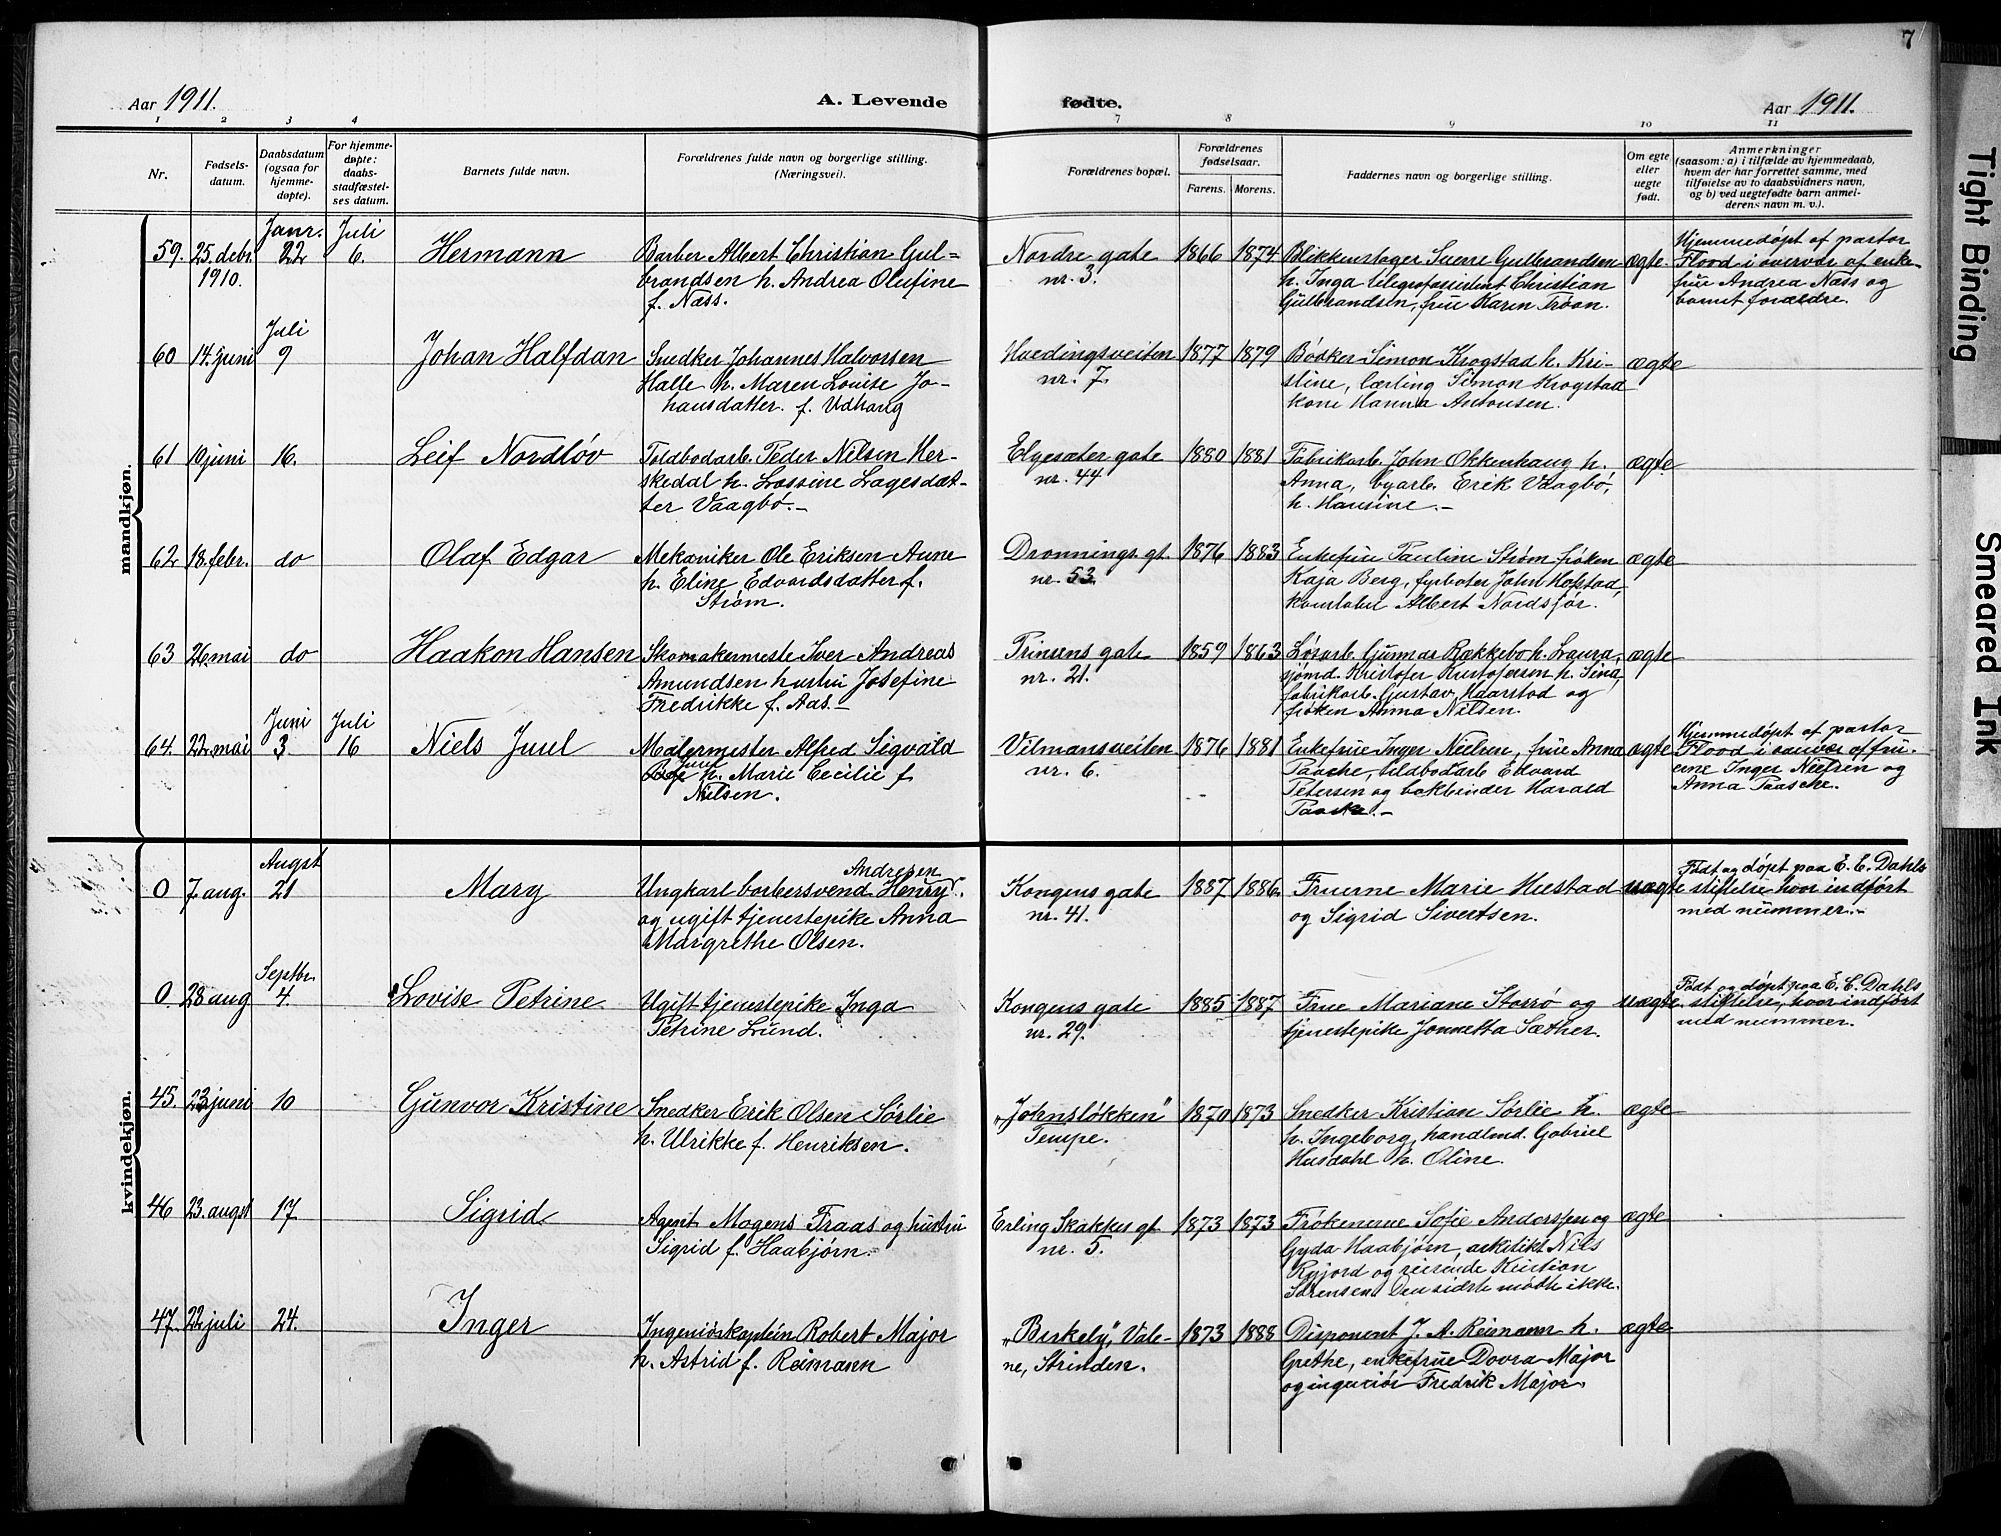 7
Aar 1911.
A. Levende
fødte.
Aar 1911.
1 2 3 4
7 8 9 10 11
Nr.
Fødsels-
datum.
Daabsdatum
(ogsaa for
hjemme-
døpte).
For hjemme-
døpte:
daabs-
stadfæstel-
ses datum.
Barnets fulde navn.
Forældrenes fulde navn og borgerlige stilling.
(Næringsvei).
Forældrenes bopæl.
Forældrenes
fødselsaar.
Farens. Morens.
Faddernes navn og borgerlige stilling.
Om egte
eller
uegte
født.
Anmerkninger
(saasom: a) i tilfælde av hjemmedaab,
hvem der har forrettet samme, med
tilføielse av to daabsvidners navn,
og b) ved uegtefødte barn anmel-
derens navn m. v.).
mandkjøn.
59. 25. debr.
1910.
Janr.
22
Juli
6.
Hermann
Barber Albert Christian Gul=
brandsen h. Andrea Olufine
f. Næss.
Nordre gate
nr. 3.
1866 1874
Blikkenslager Sverre Gulbrandsen
h. Inga telegrafassistent Christian
Gulbrandsen, frue Karen Trøan.
ægte.
Hjemmedøpt af pastor
Flood i overvær af enke-
frue Andrea Næss og
barnet forældre.
60 14. juni
Juli
9
Johan Halfdan
Snedker Johannes Halvorsen
Halle h. Maren Louise Jo-
hansdatter f. Udhaug
Hvedingsveiten
nr. 7.
1877 1879
Bødker Simon Krogstad h. Kri-
stine, lærling Simon Krogstad
kone Hanna Antonsen.
ægte
61 10 juni 16.
Leif Nordløv
Toldbodarb. Peder Nilsen Her-
skedal h. Lassine Lagesdat-
ter Vaagbø.-
Elgesæter gate
nr. 44
1880 1881
Fabrikarb. John Okkenhaug h.
Anna, byarb. Erik Vaagbø,
h. Hansine.-
ægte
62 18. febr. do
Olaf Edgar
Mekaniker Ole Eriksen Aune
h. Eline Edvardsdatter f.
Strøm.
Dronnings. gt.
nr. 53.
1876 1883
Enkefrue Pauline Strøm frøken
Kaja Berg, fyrbøter John Hofstad,
konstabel Albert Nordsjør.
ægte
63 26 mai do
Haakon Hansen
Skomakermeste Iver Andreas
Amundsen hustru Josefine
Fredrikke f. Aas.-
Prinsens gate
nr. 21.
1859 1863
Løsarb. Gunnar Rækkebo h. Laura,
sjømd. Kristofer Kristofersen h. Sina,
fabrikarb. Gustav Haarstad og
frøken Anna Nilsen.
ægte
64. 22. mai
Juni
3
Juli
16
Niels Juul
Malermester Alfred Sigvald
Juul
h. Marie Cecilie f
Nielsen.
Vilmansveiten
nr. 6.
1876 1881
Enkefrue Inger Nielsen, frue Anna
Paasche, toldbodarb Edvard
Petersen og bokbinder Harald
Paaske.-
ægte
Hjemmedøpt af pastor
Flood i overvær af fru-
erne Inger Nielsen og
Anna Paasche.
kvindekjøn.
0 7 aug.
Augst
21
Mary
Andresen
Ungkarl barbersvend Henry
og ugift tjenestepike Anna
Margrethe Olsen.
Kongens gate
nr. 41.
1887 1886
Fruerne Marie Hustad
og Sigrid Sivertsen.
uægte
Født og døpt paa E. C. Dahls
stiftelse hvor indført
med nummer.-
0. 28 aug
Septbr.
4.
Lovise Petrine
Ugift tjenestepike Inga
Petrine Lund.
Kongens gate
nr. 29.
1885 1887
Frue Mariane Storrø og
tjenestepike Jonnetta Sæther.
uægte.
Født og døpt paa E. C. Dahls
stiftelse, hvor indført
med nummer.
45. 23 juni 10
Gunvor Kristine
Snedker Erik Olsen Sørlie
h. Ulrikke f. Henriksen.
„Johnsløkken"
Tempe.
1870 1873
Snedker Kristian Sørlie h.
h. Ingeborg, handlmd. Gabriel
Husdahl h. Oline.
ægte
46 23. augst 17
Sigrid
Agent Mogens Fraas og hustru
Sigrid f. Haabjørn.
Erling Skakkes gt.
nr. 5.
1873 1873
Frøkenerne Sofie Anderssen og
Gyda Haabjørn, arkitekt Nils
Ryjord og reisende Kristian
Sørensen. Den sidste mødte ikke.
ægte
47. 22 juli 24.
Inger
Ingeniørkaptein Robert Major
h. Astrid f. Reimann
„Birkely", Vale-
ne, Strinden.
1873 1888
Disponent J. A. Reimann h.
Grethe, enkefrue Dovra Major
og ingeniør Fredrik Major.
ægte
Tight Binding
Smeared Ink